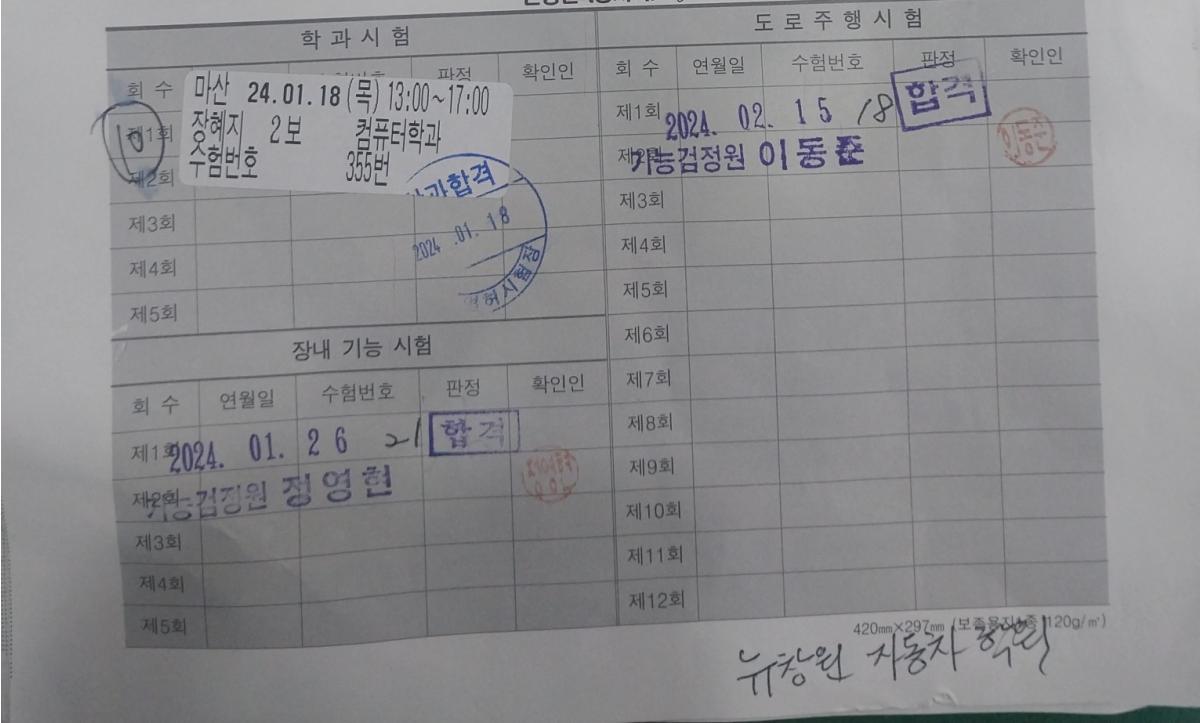 학 과 시 험
회 수 판정 확인인
마산 24.01.18(목) 13:00~17:00
장혜지 2보 컴퓨터학과
수험번호 355번
제1회
제2회
제3회
제4회
제5회
과합격
2024 .01. 18
허시험장
장내 기능 시험
회 수 연월일 수험번호 판정 확인인
제1회 2024. 01. 26 21 합격
제2회 기능검정원 정영현
제3회
제4회
제5회
도 로 주 행 시 험
회 수 연월일 수험번호 판정 확인인
제1회 2024. 02. 15 18 합격
기능검정원 이동준
이동준
제3회
제4회
제5회
제6회
제7회
제8회
제9회
제10회
제11회
제12회
420㎜×297㎜ (보존용지1종 120g/㎡)
뉴창원 자동차 학원